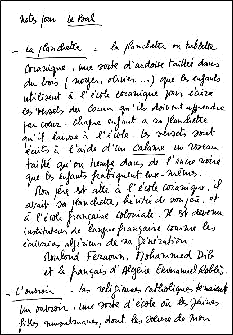 Notes pour Le Bal
- La planchette = la planchette ou tablette
coranique, une sorte d'ardoise taillée dans
du bois (noyer, olivier...) que les enfants
utilisent à l'école coranique pour écrire
les versets du Coran qu'ils doivent apprendre
par coeur. Chaque enfant a sa planchette
qu'il laisse à l'école. Les versets sont
écrits à l'aide d'un calame un roseau
taillé qu'on trempe dans de l'encre noire
que les enfants fabriquent eux-mêmes.
Mon père est allé à l'école coranique, il
avait sa planchette, et
à l'école française coloniale. Il est devenu
instituteur de langue française comme les
écrivains algériens de sa génération:
Mouloud Feraoun, Mohammed Dib
et le français d'Algérie Emmanuel Roblès.
- L'ouvroir - Les religieuses catholiques
un ouvroir, une sorte d'école où les jeunes
filles musulmanes, dont les soeurs de mon